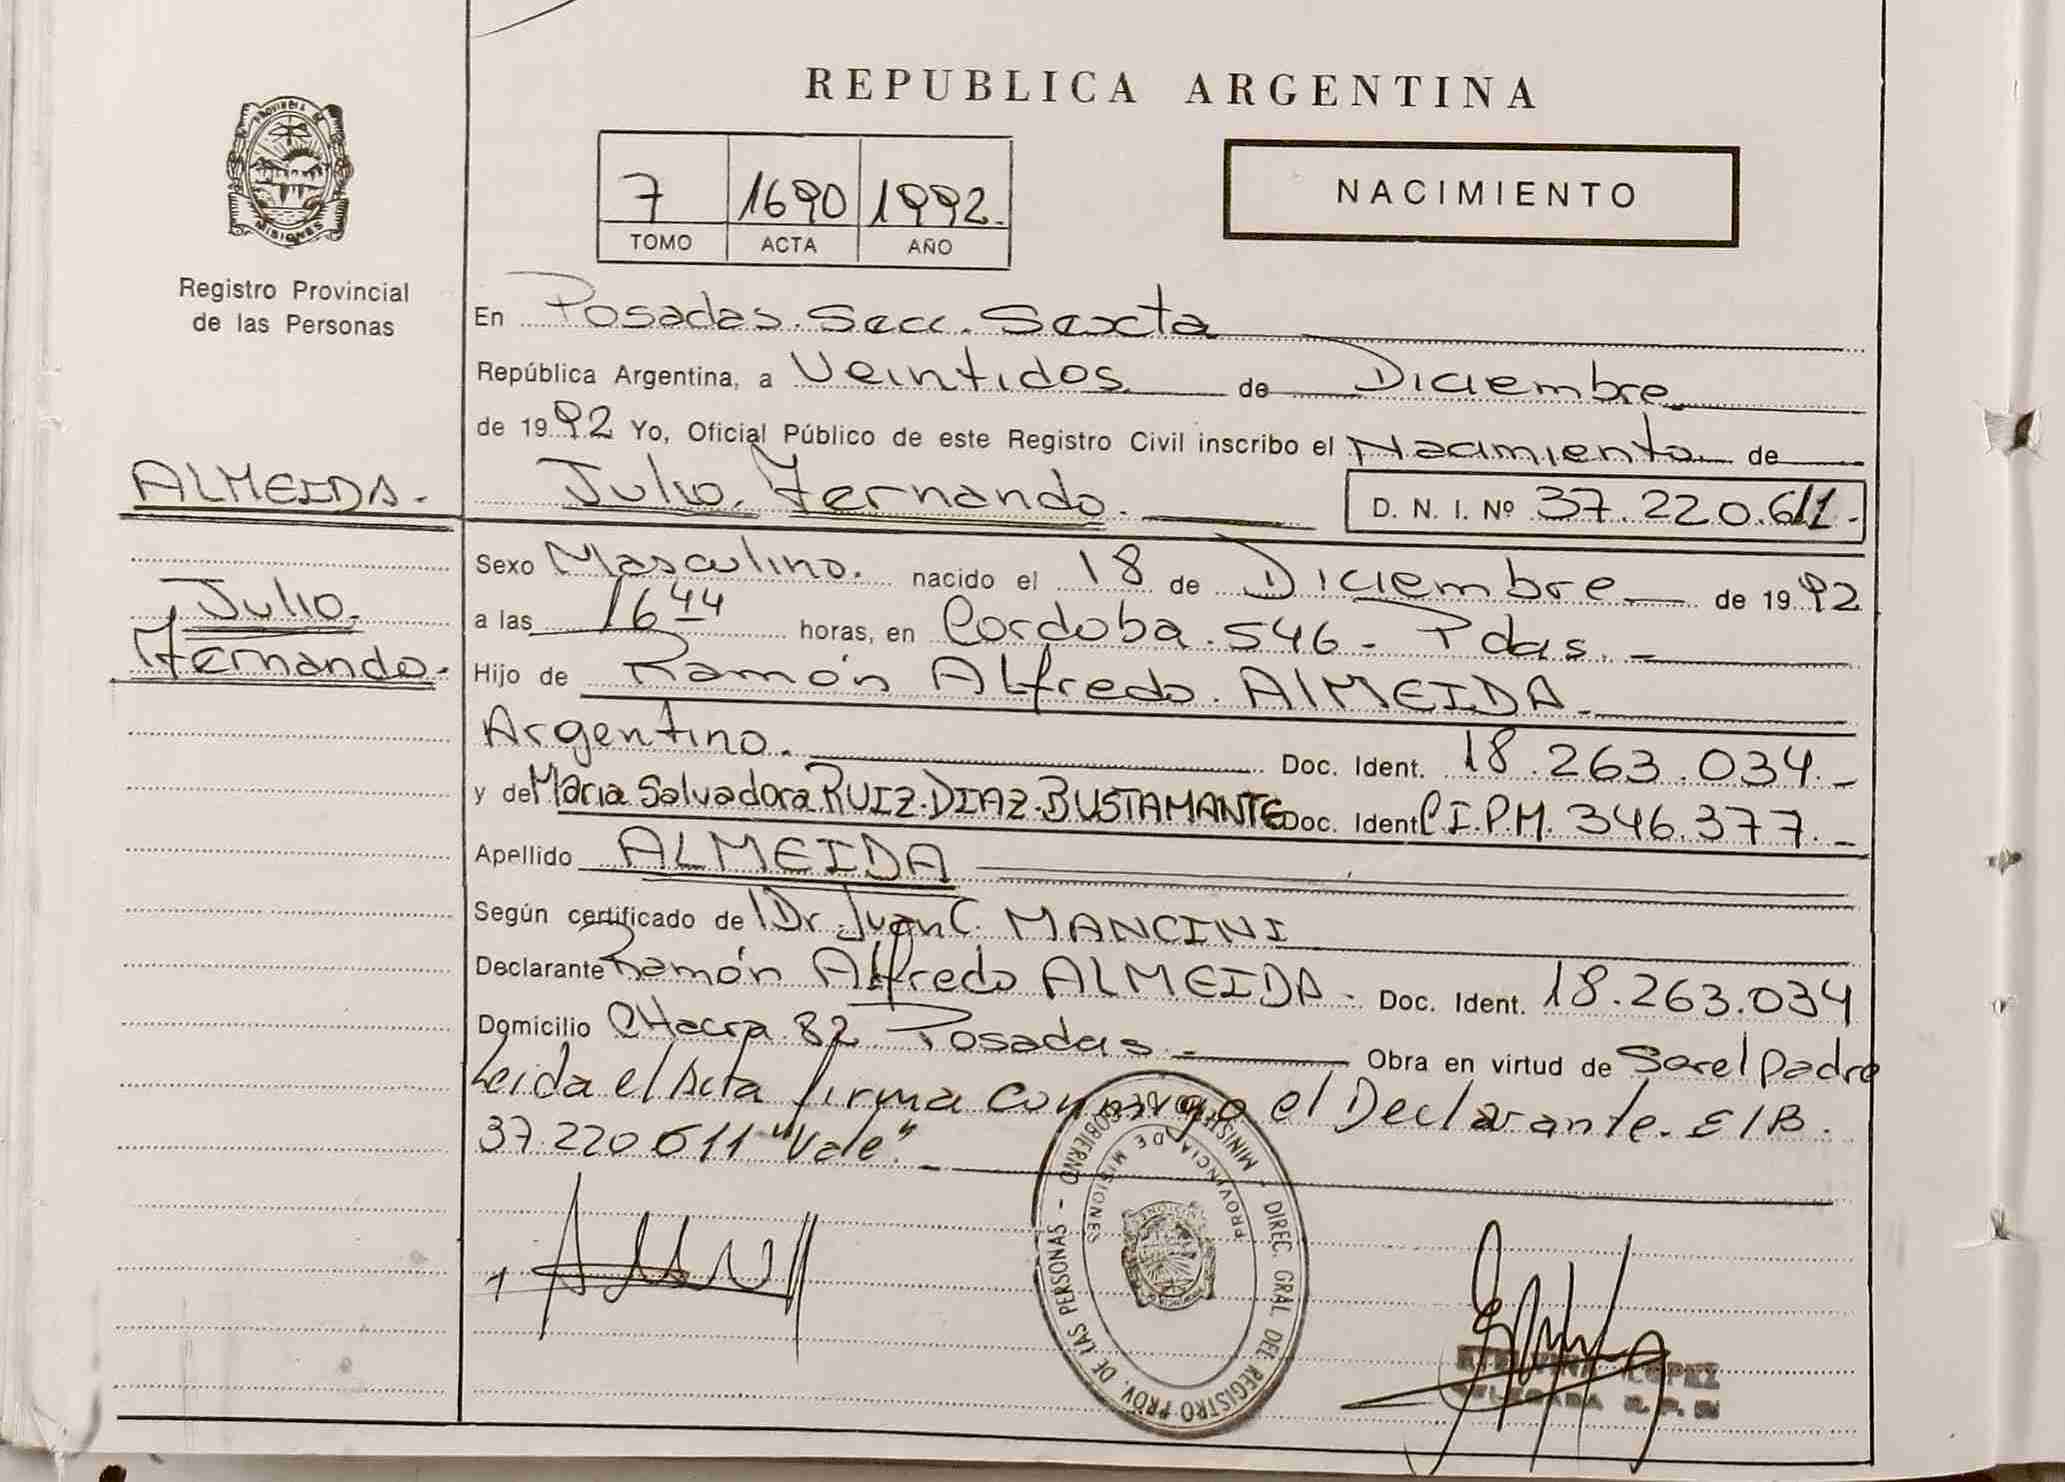 REPUBLICA ARGENTINA
PROVINCIA DE
MISIONES
Registro Provincial
de las Personas
7 1690 1992.
TOMO ACTA AÑO
NACIMIENTO
En Posadas. Secc. Sexta
República Argentina, a Veintidos de Diciembre
de 1992 Yo, Oficial Público de este Registro Civil inscribo el Nacimiento de
ALMEIDA.
Julio. Fernando.
D. N. I. Nº 37.220.611.
Julio.
Fernando.
Sexo Masculino. nacido el 18 de Diciembre de 1992
a las 16 44 horas, en Cordoba. 546 - Pdas. -
Hijo de Ramón Alfredo. ALMEIDA.
Argentino. Doc. Ident. 18.263.034. -
y de Maria Salvadora RUIZ. DIAZ. BUSTAMANTE Doc. Ident C.I.P.M. 346.377. -
Apellido ALMEIDA
Según certificado de Dr. Juan C. MANCINI
Declarante Ramón Alfredo ALMEIDA - Doc. Ident. 18.263.034
Domicilio CHacra 82 Posadas - Obra en virtud de Ser el padre
Leida el Acta firma conmigo el Declarante. E/B.
37.220.611 "Vale". -
DIREC. GRAL. DEL REGISTRO PROV. DE LAS PERSONAS - MINISTERIO DE GOBIERNO -
PROVINCIA DE MISIONES
LOPEZ
DELEGADA R. P.